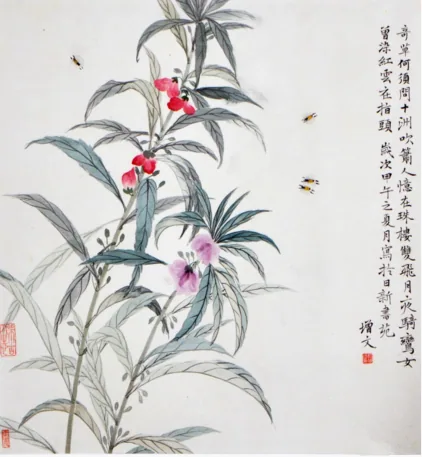 奇草何須問十洲吹簫人憶在珠樓雙飛月夜騎鸞女
曾染紅雲在指頭 歲次甲午之夏月寫於日新書苑
增文